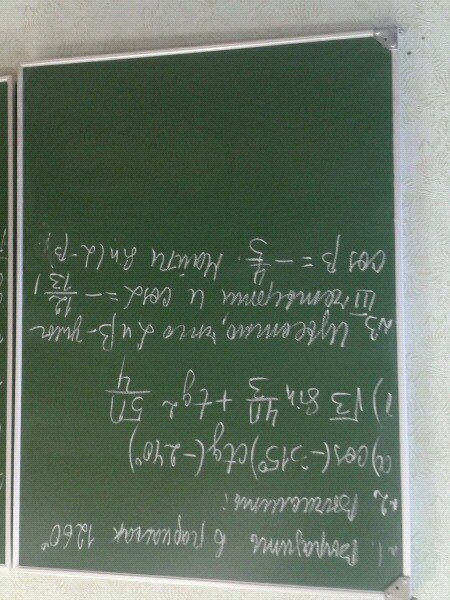 №1. Выразите в радианах 1260°
№2. Вычислите:
а) cos(-315°)ctg(-240°)
б) √3 sin 4π/3 + tg² 5π/4
№3. Известно, что α и β - углы
III четверти и cosα = - 12/13,
cos β = - 4/5. Найти sin(α-β)